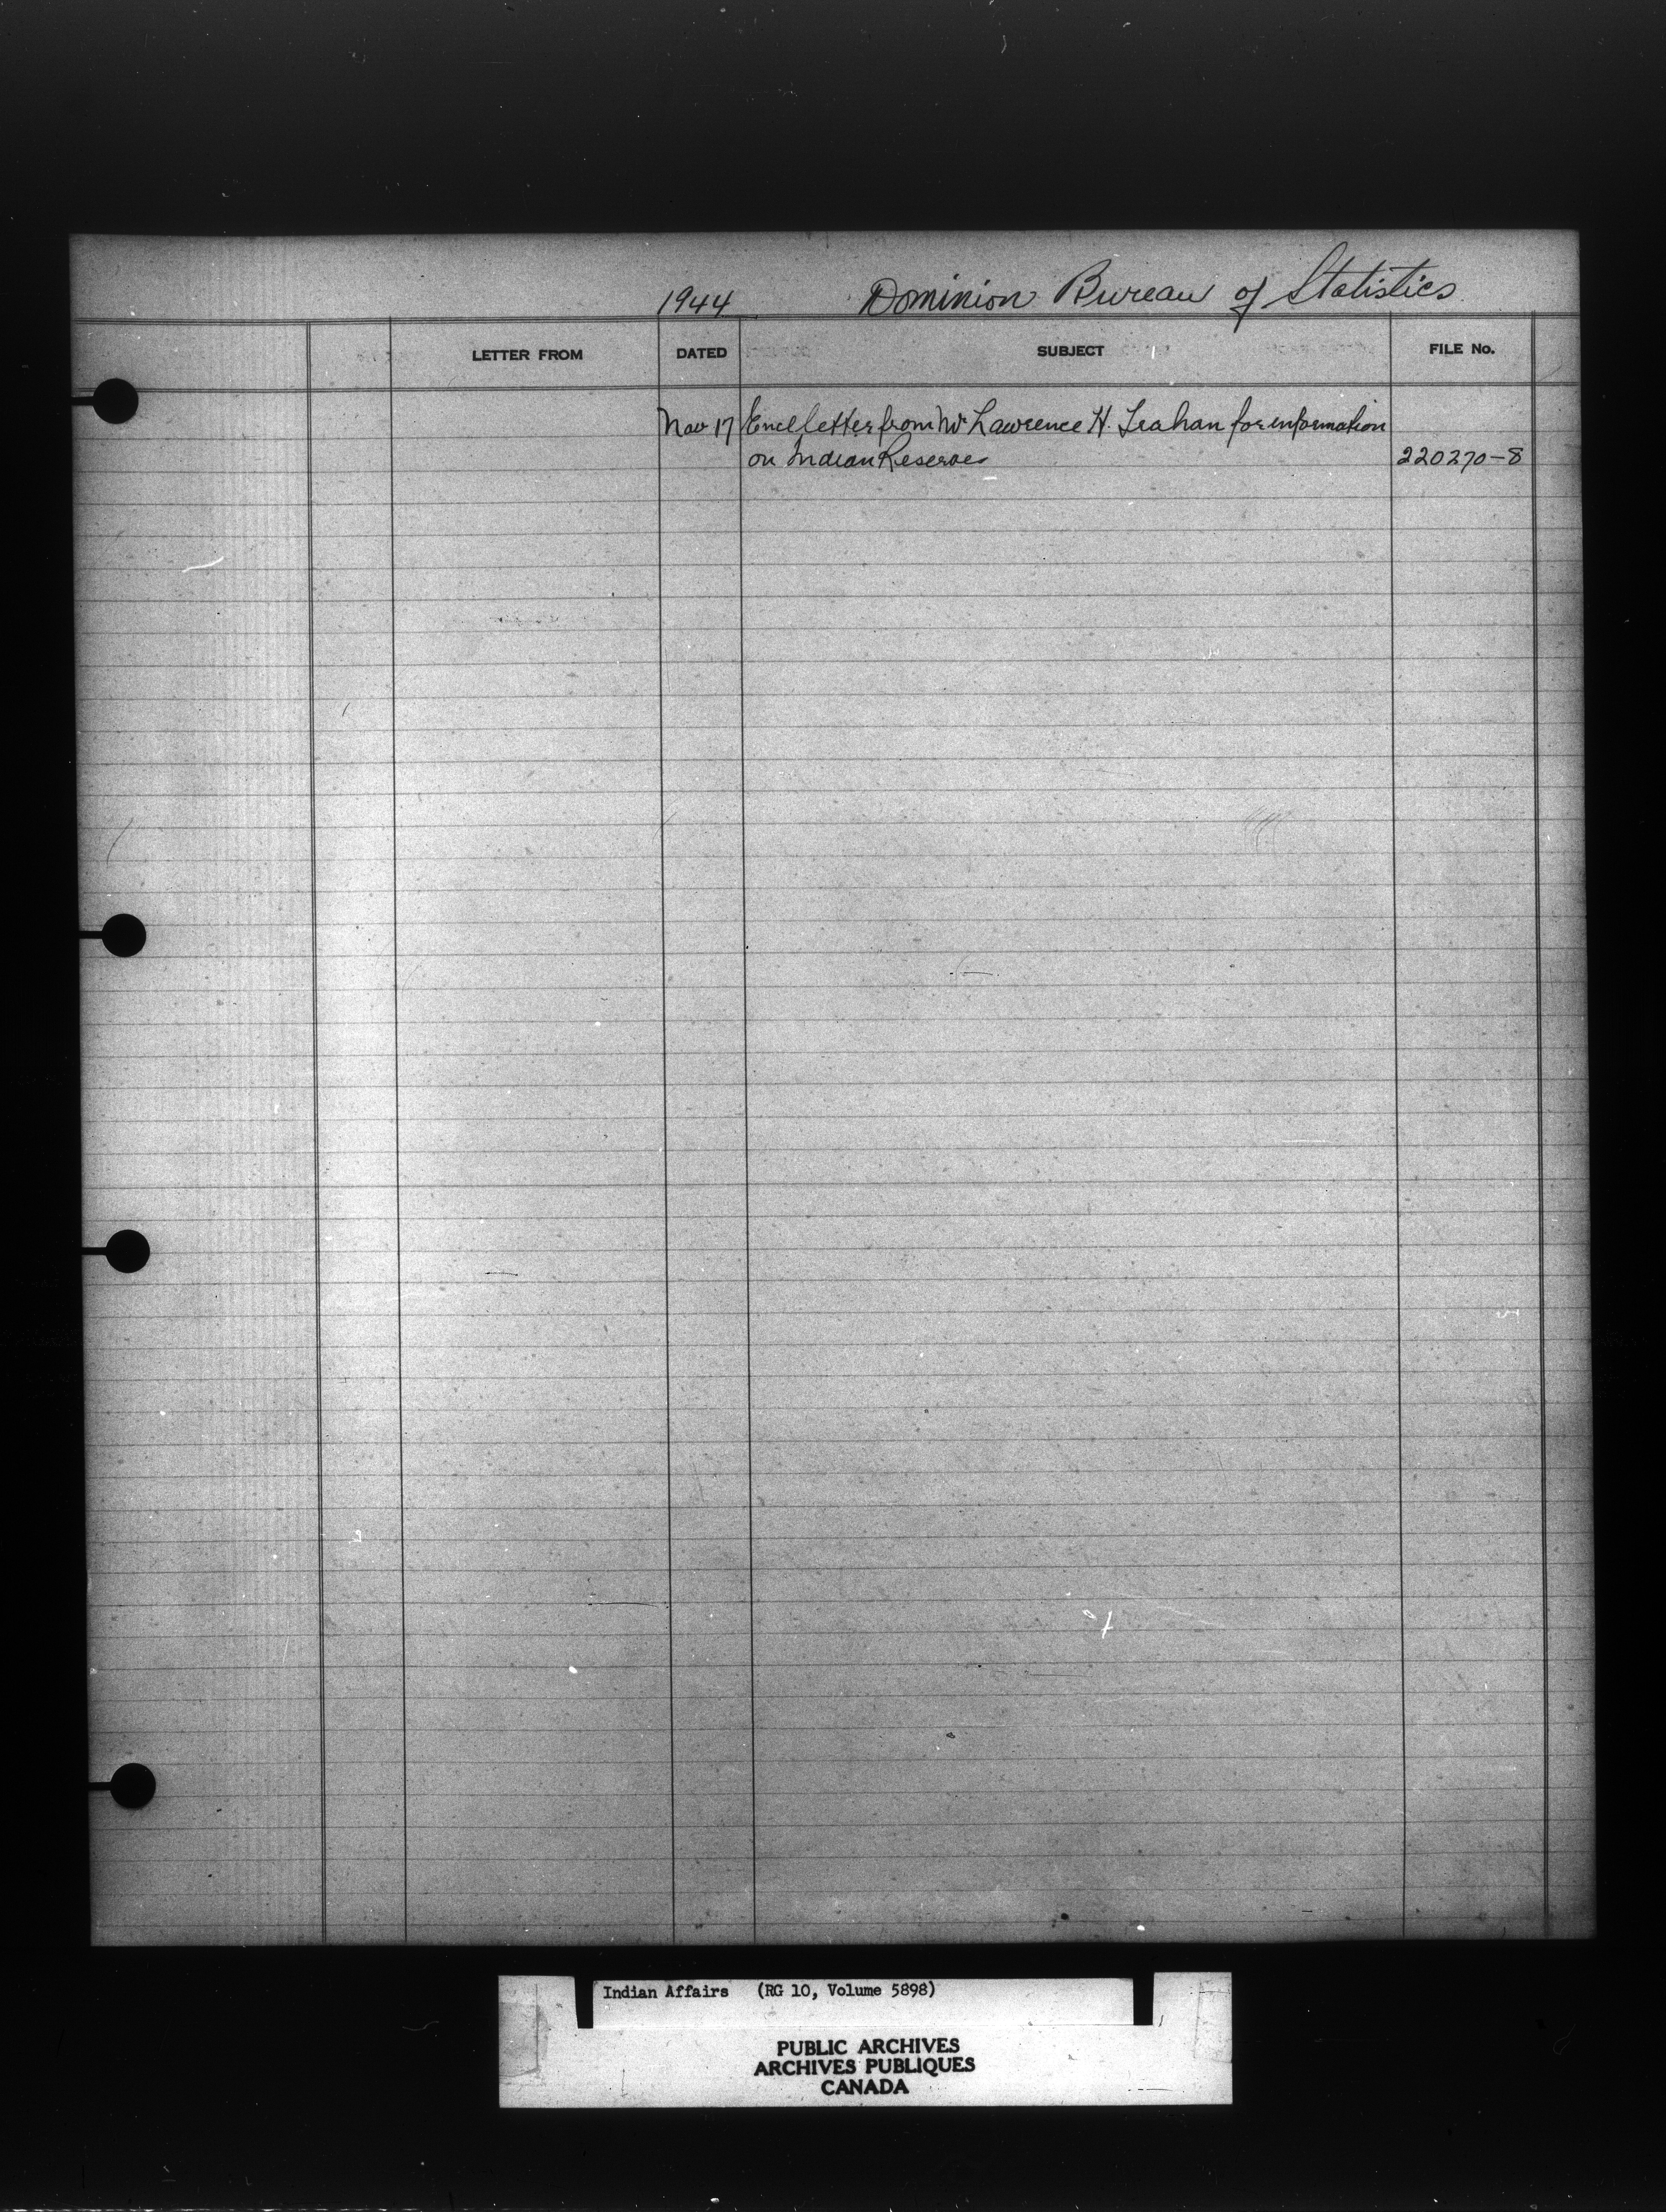 1944 Dominion Bureau of Statistics
LETTER FROM DATED SUBJECT FILE No.
Nov 17 Encl letter from Mr Lawrence H. Leahan for information
on Indian Reserves 220270-8
Indian Affairs (RG 10, Volume 5898)
PUBLIC ARCHIVES
ARCHIVES PUBLIQUES
CANADA